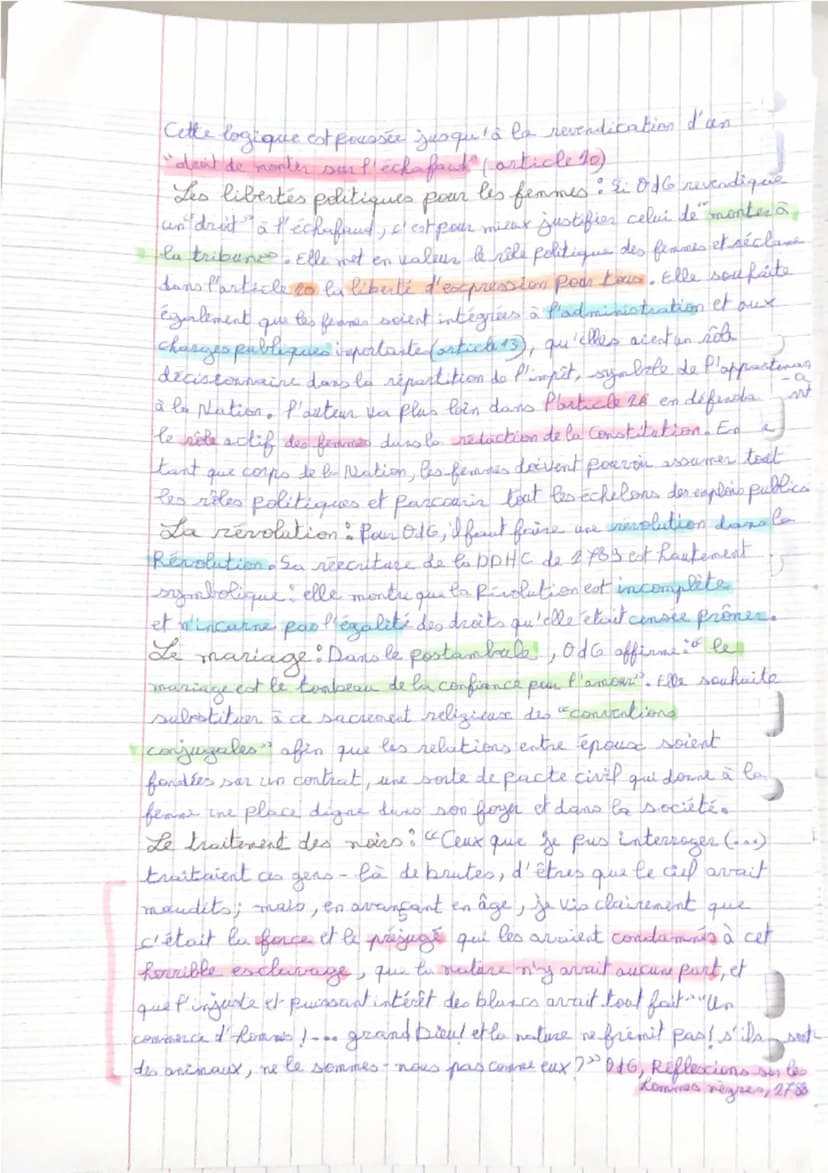 Cette logique est poussée jusqu'à la revendication d'un
"droit de monter sur l'échafaud" (article 10)
Les libertés politiques pour les femmes : Si OdG revendique
un "droit" à l'échafaud, c'est pour mieux justifier celui de "monter à
la tribune". Elle met en valeur le rôle politique des femmes et réclame
dans l'article 10 la liberté d'expression pour tous. Elle souhaite
également que les femmes soient intégrées à l'administration et aux
charges publiques importante (article 13), qu'elles aient un rôle
décisionnaire dans la répartition de l'impôt, symbole de l'appartenan
-ce
à la Nation. L'auteur va plus loin dans l'article 16 en défenda
-nt
le rôle actif des femmes dans la rédaction de la Constitution. En
tant que corps de la Nation, les femmes doivent pouvoir assumer tout
les rôles politiques et parcourir tout les échelons des emplois publics
La révolution : Pour OdG, il faut faire une révolution dans la
Révolution. Sa réecriture de la DDHC de 1789 est hautement
symbolique : elle montre que la Révolution est incomplète
et n'incarne pas l'égalité des droits qu'elle était censée prôner.
Le mariage : Dans le postambule, OdG affirme : "le
mariage est le tombeau de la confiance pour l'amour". Elle souhaite
substituer à ce sacrement religieux des "conventions
conjugales" afin que les relations entre époux soient
fondées sur un contrat, une sorte de pacte civil qui donne à la
femme une place digne dans son foyer et dans la société.
Le traitement des noirs : "Ceux que je pus interroger (...)
traitaient ces gens-là de brutes, d'êtres que le ciel avait
maudits; mais, en avançant en âge, je vis clairement que
c'était la force et le préjugé qui les avaient condamnés à cet
horrible esclavage, que la nature n'y avait aucune part, et
que l'injuste et puissant intérêt des blancs avait tout fait." "Un
commerce d'hommes !... grand Dieu! et la nature ne frémit pas! s'ils sont
des animaux, ne le sommes-nous pas comme eux ?" OdG, Réflexions sur les
hommes nègres, 1788